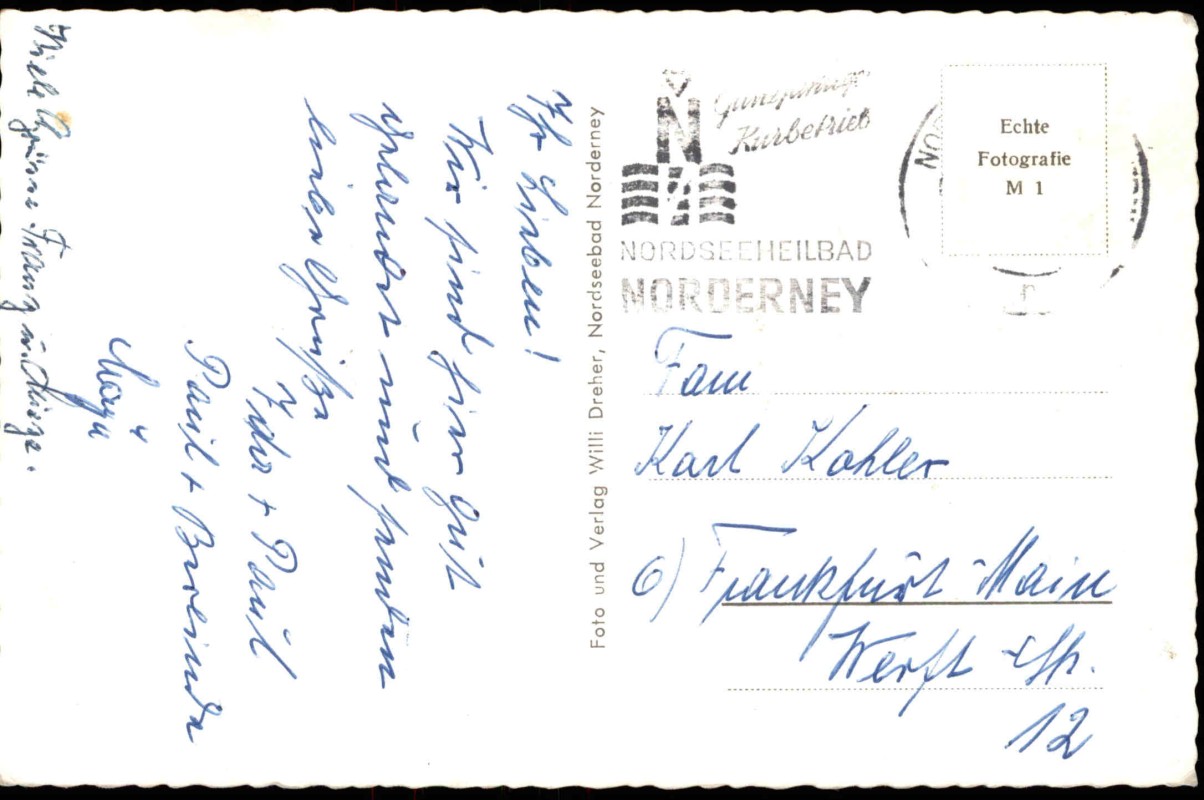 Ihr Lieben!
Wir sind hier gut
gelandet und senden
liebe Grüße
Ihr + Paul
Paul +
Viele Grüße Franz u.
Foto und Verlag Willi Dreher, Nordseebad Norderney
Ganzjähriger
Kurbetrieb
N
NORDSEEHEILBAD
NORDERNEY
NO
Echte
Fotografie
M 1
Fam
Karl Kohler
6) Frankfurt Main
Werft Str.
12